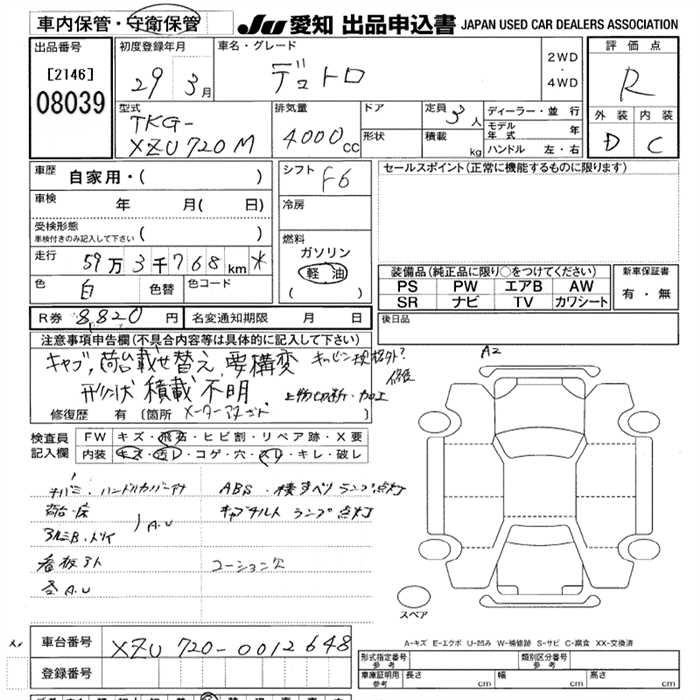 車内保管・守衛保管
JU 愛知 出品申込書 JAPAN USED CAR DEALERS ASSOCIATION
出品番号
[2146]
08039
初度登録年月
29 3月
車名・グレード
デュトロ
2WD
・
4WD
評価点
R
外装 内装
D C
型式
TKG-
XZU720M
排気量
4000cc
ドア
形状
定員 3人
積載 kg
ディーラー・並行
モデル年式 年
ハンドル 左・右
車歴
自家用・( )
車検
年 月( 日)
受検形態
車検付きのみ記入して下さい ( )
走行
59万3千768km
色
白
色替
色コード
シフト F6
冷房
燃料
ガソリン
軽油
( )
セールスポイント(正常に機能するものに限ります)
装備品(純正品に限り○をつけてください)
PS PW エアB AW
SR ナビ TV カワシート
新車保証書
有・無
後日品
R券 8,820円
名変通知期限 月 日
注意事項申告欄(不具合内容等は具体的に記入して下さい)
キャブ,荷台載せ替え,要構変
形状積載不明.
修復歴 有〔箇所
検査員
記入欄
FW キズ・飛石・ヒビ割・リペア跡・X要
内装 キズ・汚レ・コゲ・穴・スレ・キレ・破レ
ハンドルカバー
ABS・横すべりランプ点灯
A.U
キャブチルト ランプ点灯
コーション欠
A.U
A2
スペア
A-キズ E-エクボ U-凹み W-補修跡 S-サビ C-腐食 XX-交換済
車台番号 XZU720-0012648
登録番号
形式指定番号 参考
類別区分番号 参考
車庫証明用 参考
長さ cm
幅 cm
高さ cm